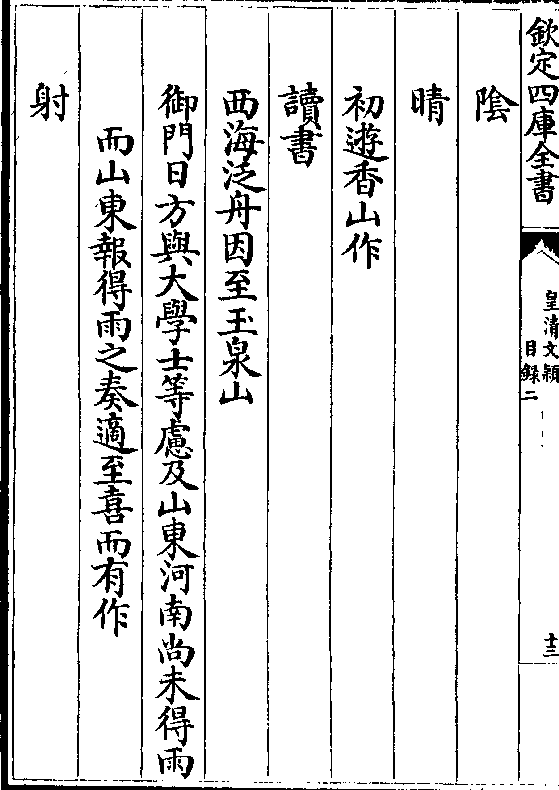 欽定四庫全書
皇清文穎
目録二
十三
陰
晴
初遊香山作
讀書
西海泛舟因至玉泉山
御門日方與大學士等慮及山東河南尚未得雨
而山東報得雨之奏適至喜而有作
射